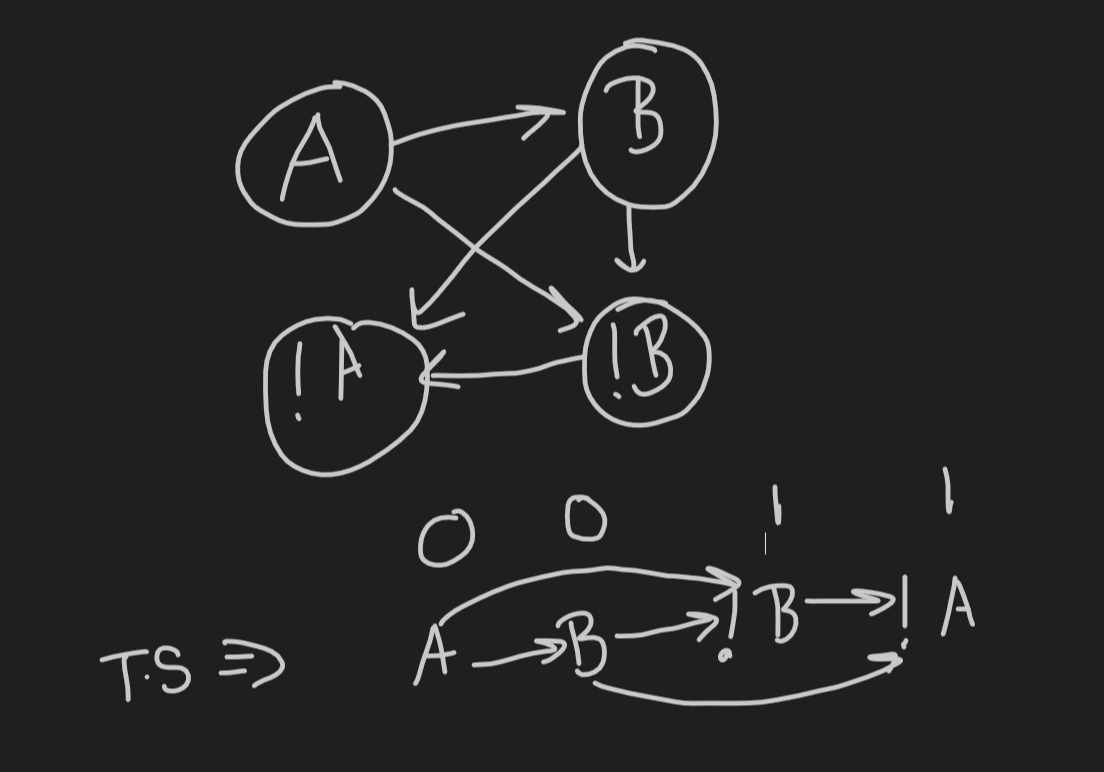 A B
!A !B
0 0 1 1
T.S ⇒ A → B → !B → !A